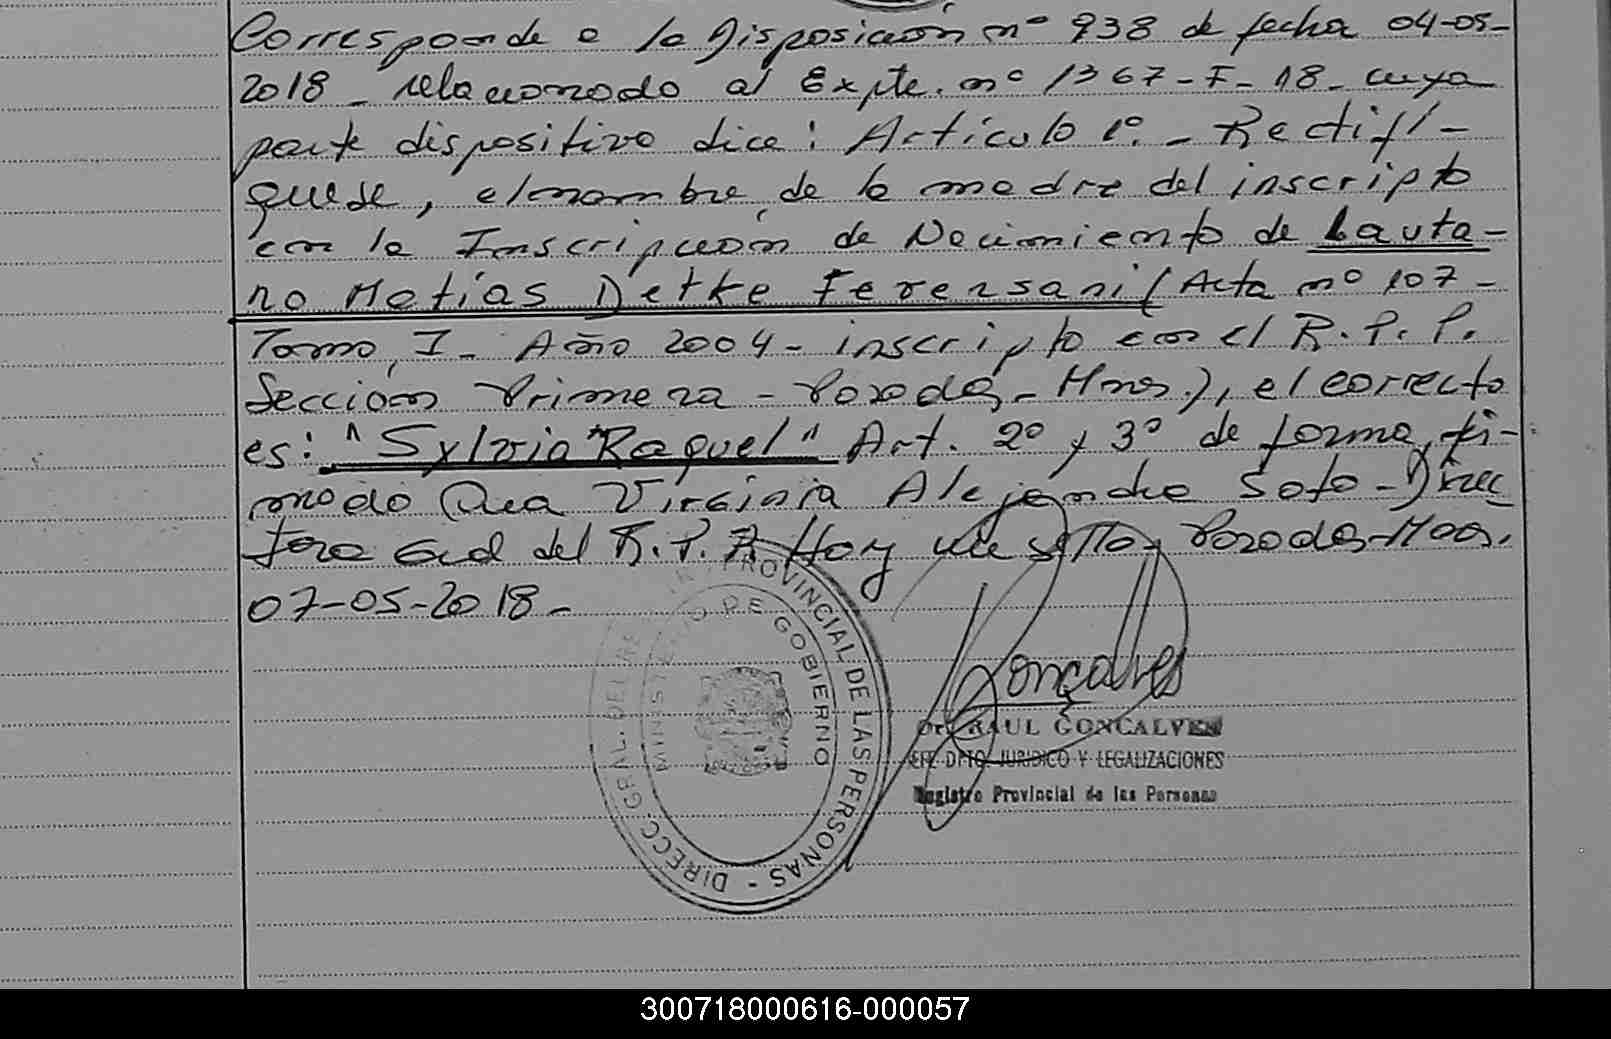 Corresponde a la Disposición nº 938 de fecha 04-05-
2018 - relacionado al Expte. nº 1367-F-18- cuya
parte dispositiva dice: Artículo 1º. - Rectifí-
quese, el nombre de la madre del inscripto
en la Inscripción de Nacimiento de Lauta-
ro Matías Detke Ferersani (Acta nº 107-
Tomo I - Año 2004 - inscripto en el R.P.P.
Sección Primera - Posadas - Mnes.), el correcto
es: "Sylvia Raquel" Art. 2º y 3º de forma, fi-
mado Dra Virginia Alejandra Soto - Direc
tora Gral del R.P.P. Hay un sello, Posadas-Mnes.
07-05-2018 -
DIRECC. GRAL. DEL REG. PROVINCIAL DE LAS PERSONAS -
MINISTERIO DE GOBIERNO
Gonçalves
Dr. RAUL GONCALVES
JEFE DPTO. JURIDICO Y LEGALIZACIONES
Registro Provincial de las Personas
300718000616-000057